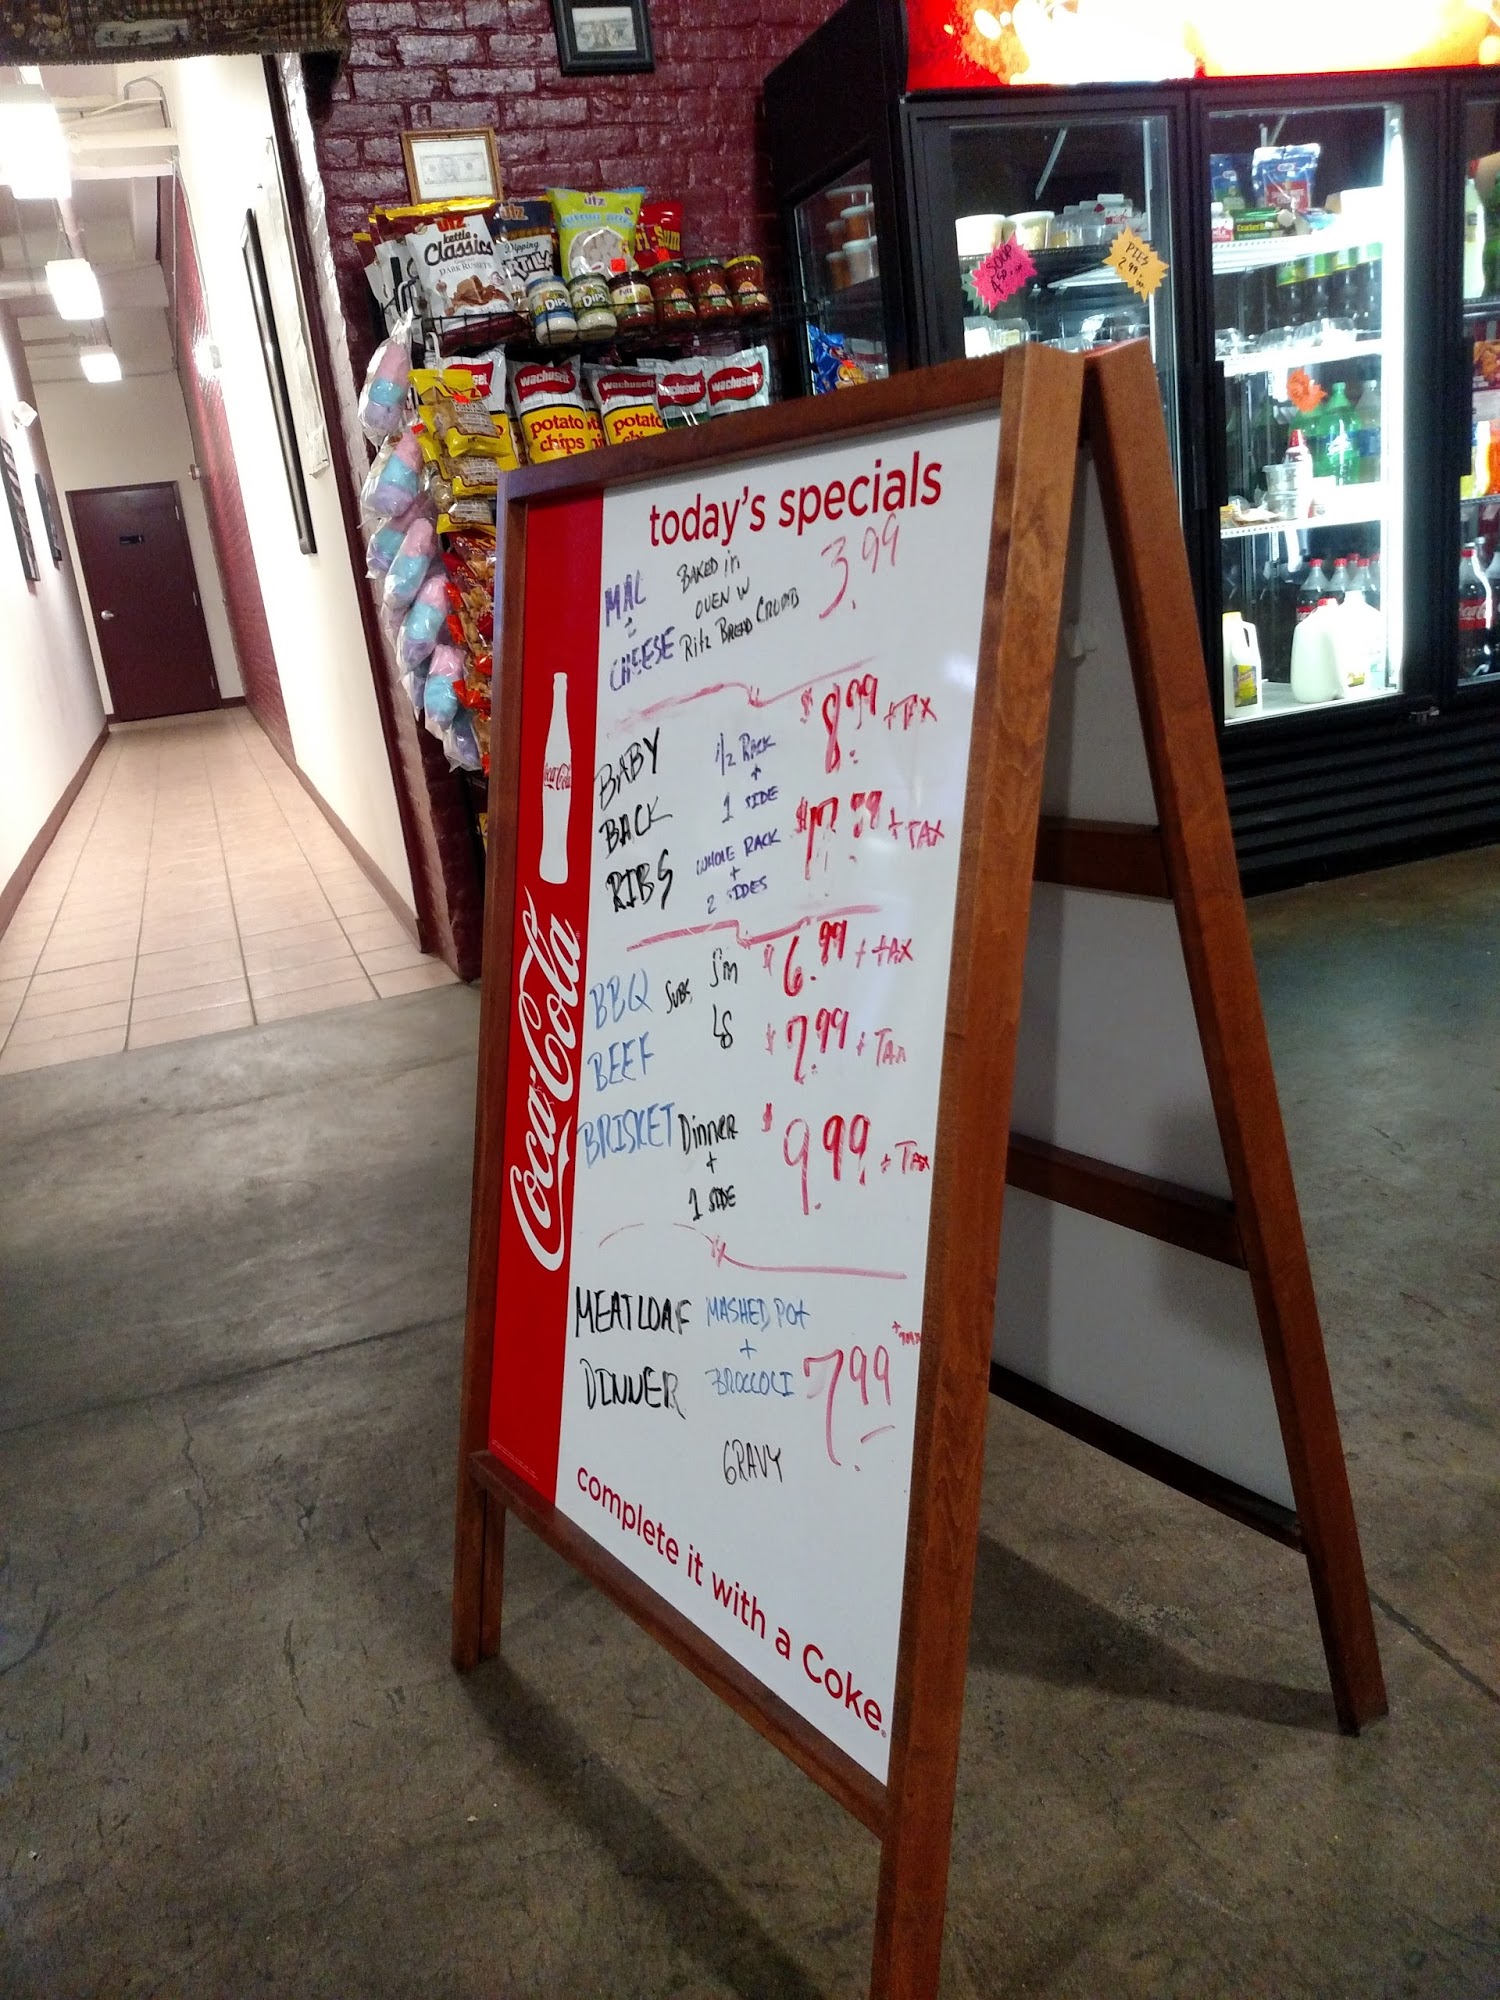 utz
kettle
Classics
DARK RUSSETS
utz
Dipping
utz
DIPS
DIPS
wachusett
wachusett
wachusett
wachusett
potato
chips
SOUP
4.50
PIES
2.99
today's specials
MAC
&
CHEESE
BAKED in
OVEN W
Ritz BREAD CRUMB
3.99
BABY
BACK
RIBS
1/2 RACK
+
1 SIDE
$8.99 + TAX
WHOLE RACK
+
2 SIDES
+ TAX
BBQ
BEEF
BRISKET
SUBS
Sm
$6.99 + TAX
LG
$7.99 + TAX
Dinner
+
1 SIDE
$9.99 + TAX
MEATLOAF
DINNER
MASHED POT
+
BROCCOLI
GRAVY
7.99
complete it with a Coke.
Coca-Cola
Coca-Cola